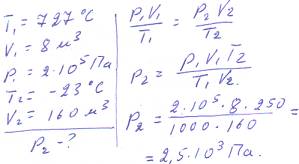 T₁ = 727 °C
V₁ = 8 м³
P₁ = 2·10⁵ Па
T₂ = −23 °C
V₂ = 160 м³
P₂ − ?
P₁V₁/T₁ = P₂V₂/T₂
P₂ = P₁V₁T₂/T₁V₂.
P₂ = 2·10⁵·8·250/1000·160 =
= 2,5·10³ Па.